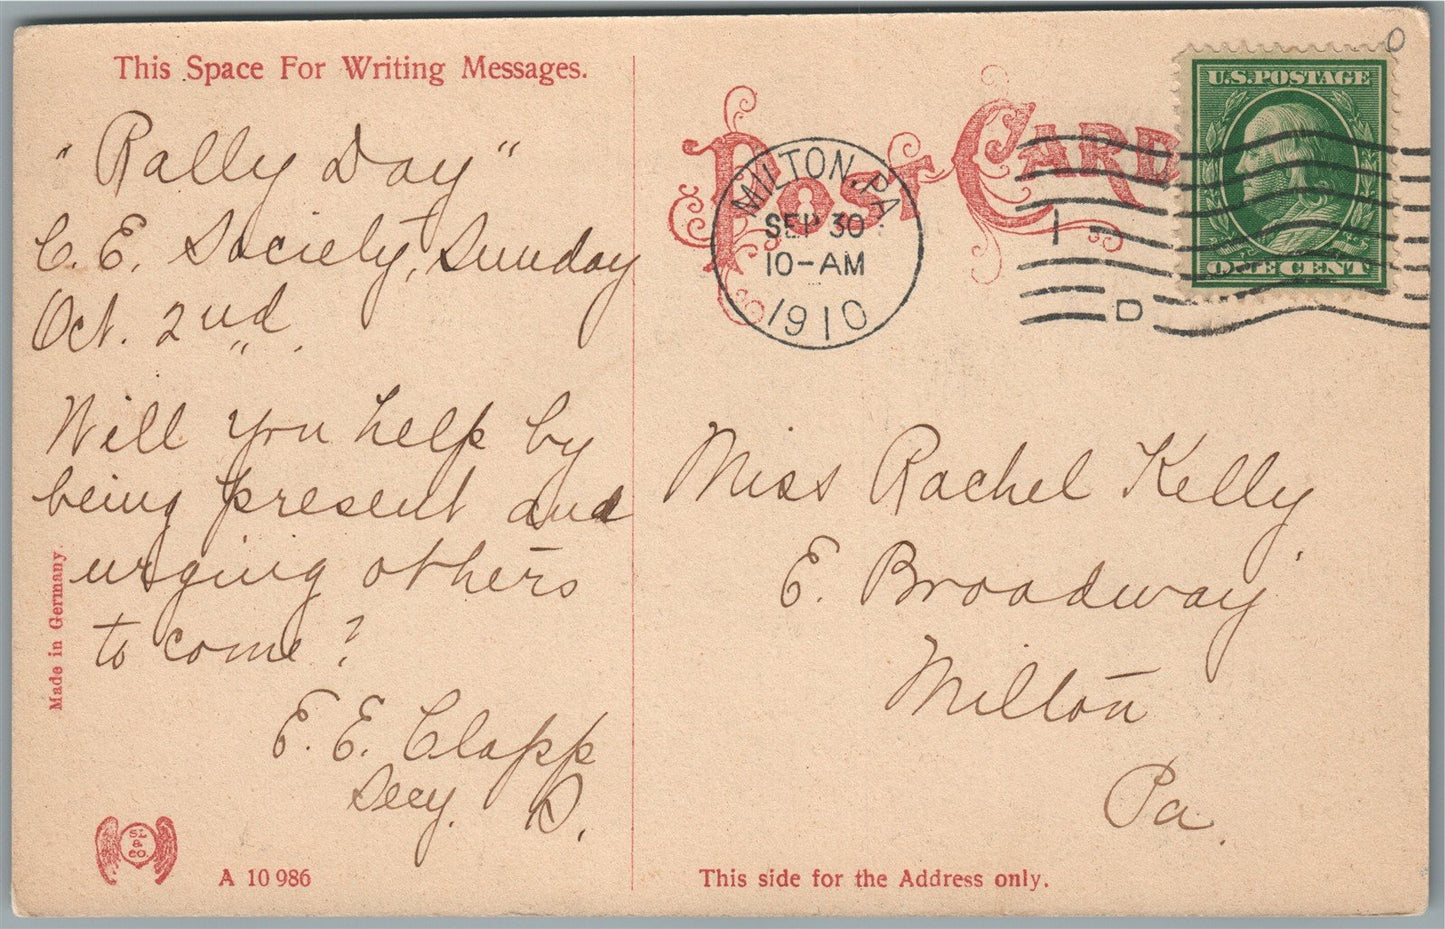 This Space For Writing Messages.
"Rally Day"
C. E. Society, Sunday
Oct. 2nd.
Will you help by
being present and
urging others
to come?
E. E. Clapp
Secy.
Made in Germany.
SL
&
Co
A 10 986
POST CARD
MILTON, PA.
SEP 30
10-AM
1910
1
D
U.S. POSTAGE
ONE CENT
0
Miss Rachel Kelly
E. Broadway
Milton
Pa.
This side for the Address only.